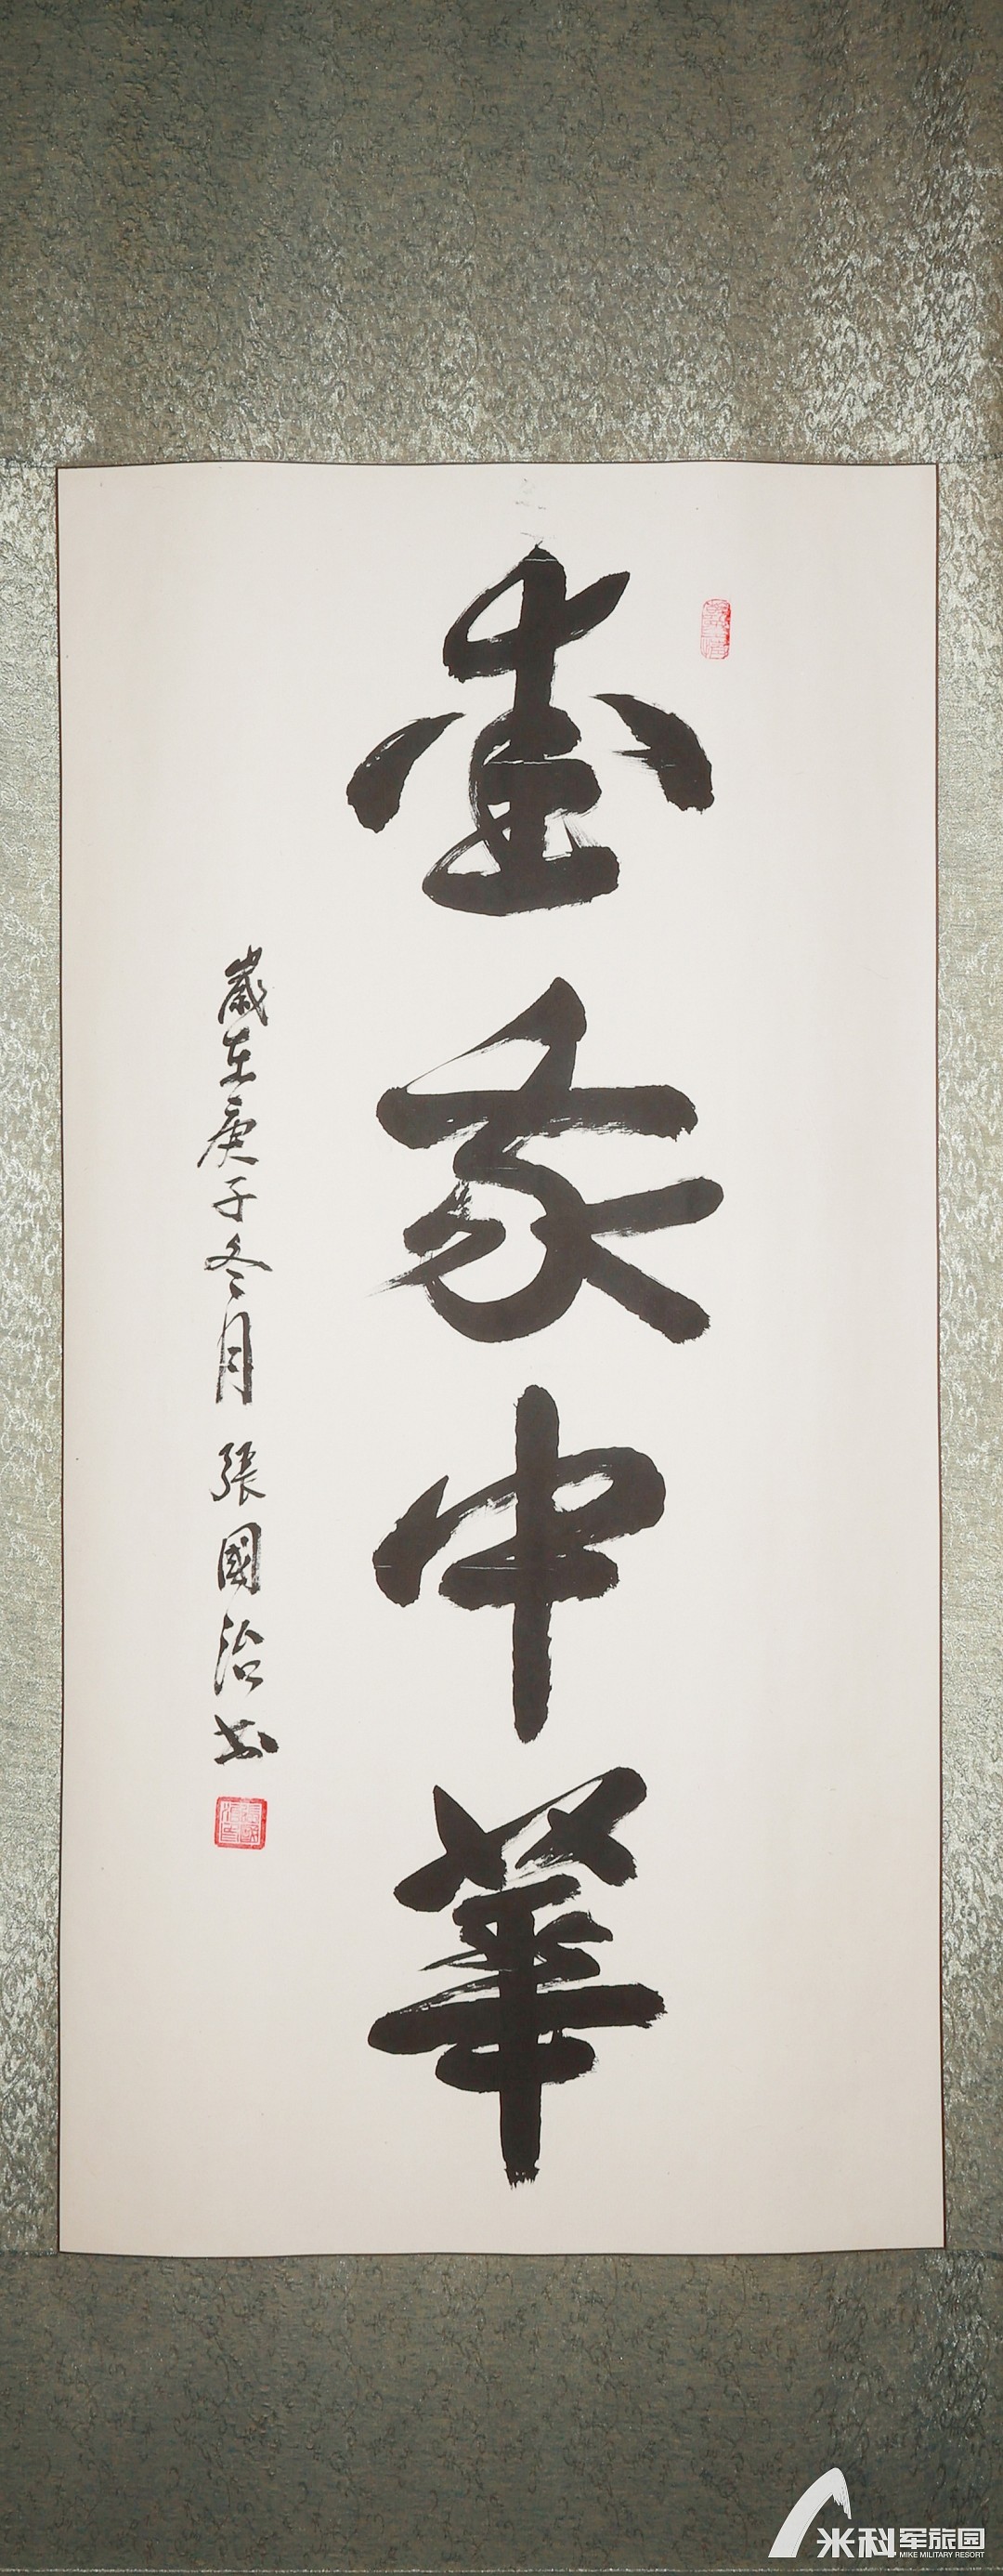 壹家中華
歲在庚子冬月 張國治书
米科军旅园
MIKE MILITARY RESORT